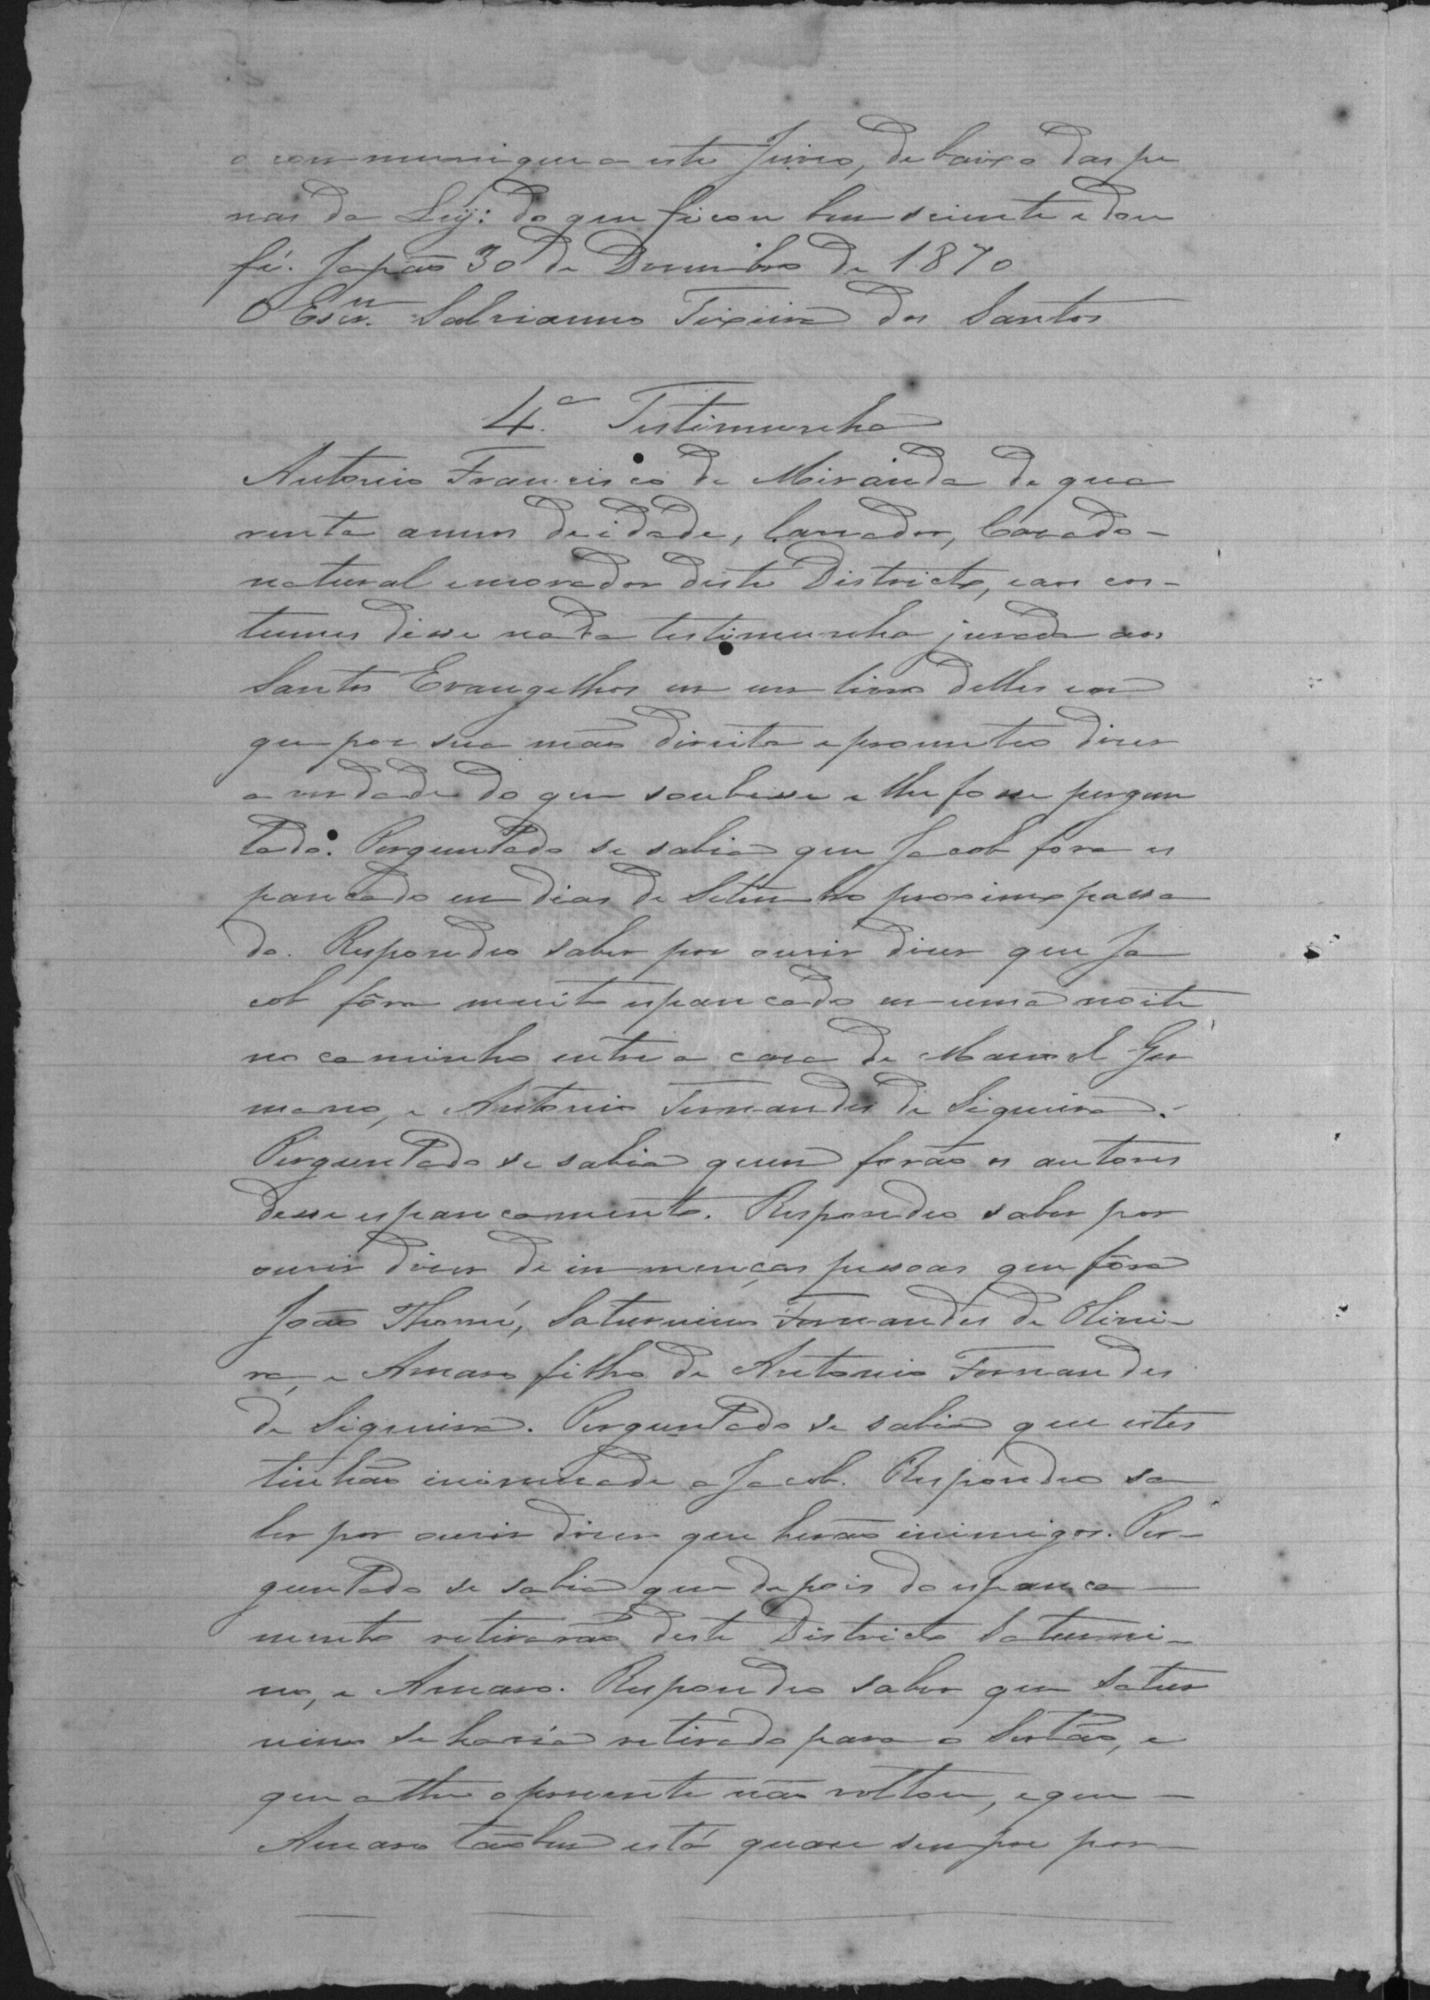 o communique a este Juiso, debaixo das pe
nas da Ley: do que ficou bem sciente e dou
fé. Japão 30 de Desembro de 1870
O Escr.m Salvianno Teixeira dos Santos
4.a Testimunha
Antonio Francisco de Miranda de qua
renta annos de idade, lavrador, Casado -
natural e morador deste Districto, e aos cos-
tumes disse nada testimunha jurada aos
Santos Evangelhos em um livro delles em
que pos sua mão direita e prometteo diser
a verdade do que soubesse e lhe fosse pergun
tado. Perguntado se sabia que Jacob fôra es
pancado em dias de Setembro proximo passa
do. Respondeo saber por ouvir diser que Ja
cob fôra muito espancado em uma noite
no caminho entre a casa de Manoel Ger
mano, e Antonio Fernandes de Siqueira.
Perguntado se sabia quem forão os autores
desse espancamento. Respondeo saber por
ouvir diser de immenças pessoas que fôra
João Thomé, Saturnino Fernandes de Olivei-
ra, e Amaro filho de Antonio Fernandes
de Siqueira. Perguntado se sabia que estes
tinhão inimisade a Jacob. Respondeo sa
ber por ouvir diser que herão inimigos. Per-
guntado se sabia que depois do espanca-
mento retirarão deste Districto Saturni-
no, e Amaro. Respondeo saber que Satur
nino se havia retirado para o Sertão, e
que athe o presente não voltou, e que -
Amaro tãobem está quase sempre por